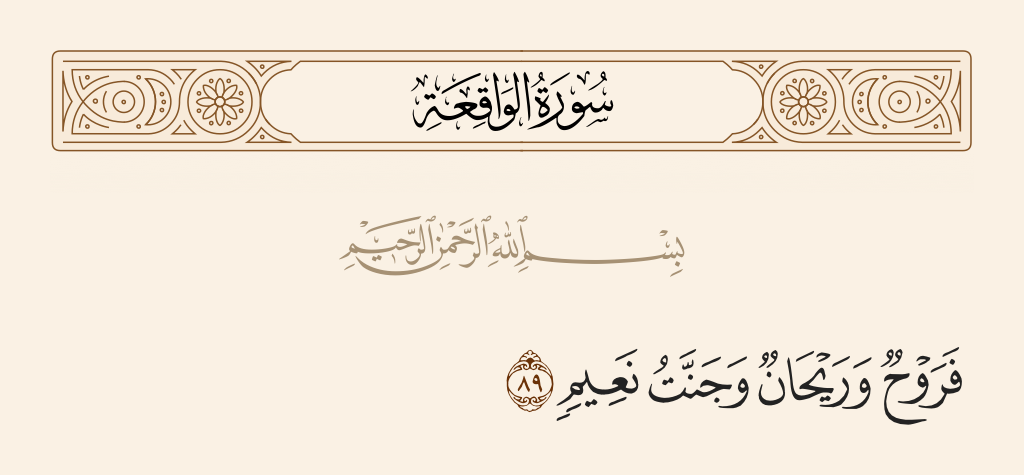 سُورَةُ الوَاقِعَةِ
بِسْمِ ٱللَّهِ ٱلرَّحْمَٰنِ ٱلرَّحِيمِ
فَرَوْحٌ وَرَيْحَانٌ وَجَنَّتُ نَعِيمٍ ٨٩